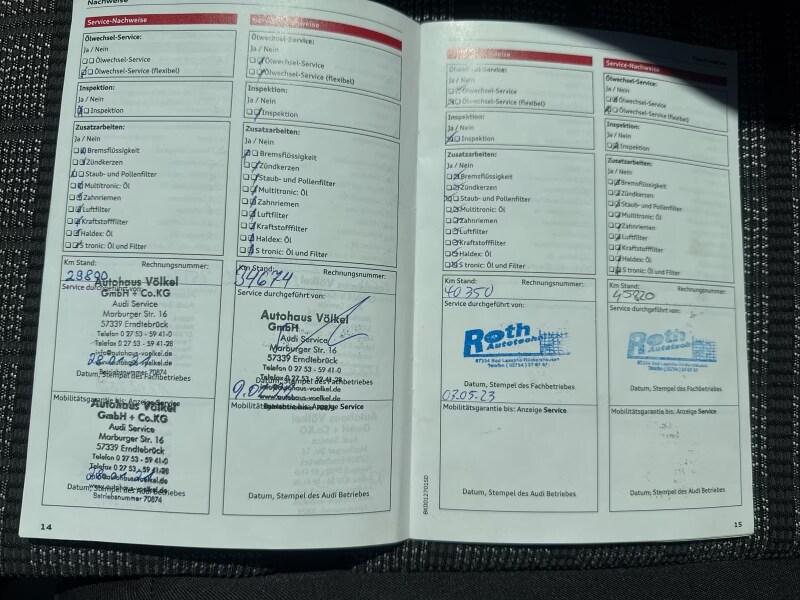 Nachweise
Service-Nachweise
Ölwechsel-Service:
Ja / Nein
Ölwechsel-Service
Ölwechsel-Service (flexibel)
Inspektion:
Ja / Nein
Inspektion
Zusatzarbeiten:
Ja / Nein
Bremsflüssigkeit
Zündkerzen
Staub- und Pollenfilter
Multitronic: Öl
Zahnriemen
Luftfilter
Kraftstofffilter
Haldex: Öl
S tronic: Öl und Filter
Km Stand: Rechnungsnummer:
29890
Service durchgeführt von:
Autohaus Völkel
GmbH + Co.KG
Audi Service
Marburger Str. 16
57339 Erndtebrück
Telefon 0 27 53 - 59 41-0
Telefax 0 27 53 - 59 41-28
info@autohaus-voelkel.de
www.autohaus-voelkel.de
Betriebsnummer 70874
Datum, Stempel des Fachbetriebes
Mobilitätsgarantie bis: Anzeige Service
Autohaus Völkel
GmbH + Co.KG
Audi Service
Marburger Str. 16
57339 Erndtebrück
Telefon 0 27 53 - 59 41-0
Telefax 0 27 53 - 59 41-28
info@autohaus-voelkel.de
www.autohaus-voelkel.de
Betriebsnummer 70874
Datum, Stempel des Audi Betriebes
14
Ölwechsel-Service:
Ja / Nein
Ölwechsel-Service
Ölwechsel-Service (flexibel)
Inspektion:
Ja / Nein
Inspektion
Zusatzarbeiten:
Ja / Nein
Bremsflüssigkeit
Zündkerzen
Staub- und Pollenfilter
Multitronic: Öl
Zahnriemen
Luftfilter
Kraftstofffilter
Haldex: Öl
S tronic: Öl und Filter
Km Stand: Rechnungsnummer:
34674
Service durchgeführt von:
Autohaus Völkel
GmbH
Audi Service
Marburger Str. 16
57339 Erndtebrück
Telefon 0 27 53 - 59 41-0
Telefax 0 27 53 - 59 41-28
info@autohaus-voelkel.de
www.autohaus-voelkel.de
Datum, Stempel des Fachbetriebes
Mobilitätsgarantie bis: Anzeige Service
Datum, Stempel des Audi Betriebes
Ja / Nein
Ölwechsel-Service
Ölwechsel-Service (flexibel)
Inspektion:
Ja / Nein
Inspektion
Zusatzarbeiten:
Ja / Nein
Bremsflüssigkeit
Zündkerzen
Staub- und Pollenfilter
Multitronic: Öl
Zahnriemen
Luftfilter
Kraftstofffilter
Haldex: Öl
S tronic: Öl und Filter
Km Stand: Rechnungsnummer:
40350
Service durchgeführt von:
Roth
Datum, Stempel des Fachbetriebes
03.05.23
Mobilitätsgarantie bis: Anzeige Service
Datum, Stempel des Audi Betriebes
Service-Nachweise
Ölwechsel-Service:
Ja / Nein
Ölwechsel-Service
Ölwechsel-Service (flexibel)
Inspektion:
Ja / Nein
Inspektion
Zusatzarbeiten:
Ja / Nein
Bremsflüssigkeit
Zündkerzen
Staub- und Pollenfilter
Multitronic: Öl
Zahnriemen
Luftfilter
Kraftstofffilter
Haldex: Öl
S tronic: Öl und Filter
Km Stand: Rechnungsnummer:
45920
Service durchgeführt von:
Roth
Datum, Stempel des Fachbetriebes
Mobilitätsgarantie bis: Anzeige Service
Datum, Stempel des Audi Betriebes
15